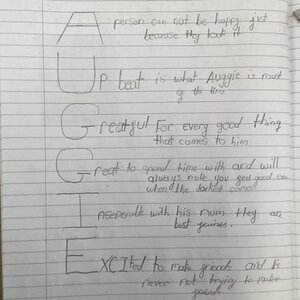 A person can not be happy just
because they look it
Up beat is what Auggie is most
of the time
Greatful For every good thing
that comes to him
Great to spend time with and will
always make you feel good
when the darkest comes
Inseperable with his mum they are
best friends.
EXCIted to make friends and Is
never not trying to make
friends